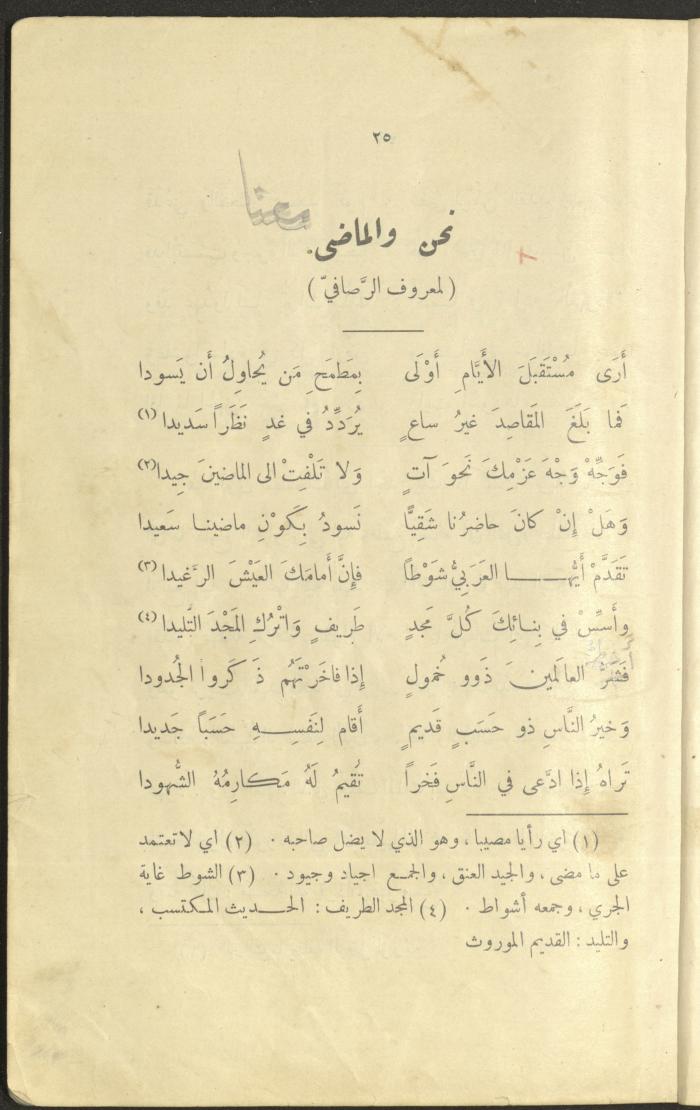 ٢٥
معنا
نحن والماضى
(لمعروف الرَّصافيّ)
أَرَى مُسْتَقبَلَ الأَيَّامِ أَوْلَى بِمَطمَحِ مَن يُحاوِلُ أَن يَسودا
فَما بَلَغَ المَقاصِدَ غيرُ ساعٍ يُرَدِّدُ في غدٍ نَظَراً سَديدا (١)
فَوَجِّهْ وَجْهَ عَزْمِكَ نَحوَ آتٍ وَلا تَلْفِتْ الى الماضينَ جِيدا (٢)
وَهَلْ إِنْ كانَ حاضرُنا شَقِيًّا نَسودُ بِكَوْنِ ماضينا سَعيدا
تَقَدَّمْ أَيُّها العَرَبيُّ شَوْطاً فإِنَّ أَمامَكَ العَيْشَ الرَّغيدا (٣)
وأَسِّسْ في بِنائِكَ كُلَّ مَجدٍ طَريفٍ وَاتْرُكِ المَجْدَ التَّليدا (٤)
فَشَرُّ العالَمينَ ذَوو خُمولٍ إِذا فاخَرْتَهُم ذَكَروا الجُدودا
وَخيرُ النَّاسِ ذو حَسَبٍ قَديمٍ أَقام لِنَفسِهِ حَسَباً جَديدا
تَراهُ إِذا ادَّعى في النَّاسِ فَخراً تُقيمُ لَهُ مَكارِمُهُ الشُّهودا
(١) اي رأيا مصيبا ، وهو الذي لا يضل صاحبه . (٢) اي لا تعتمد
على ما مضى ، والجيد العنق ، والجمع اجياد وجيود . (٣) الشوط غاية
الجري ، وجمعه أشواط . (٤) المجد الطريف : الحديث المكتسب ،
والتليد : القديم الموروث